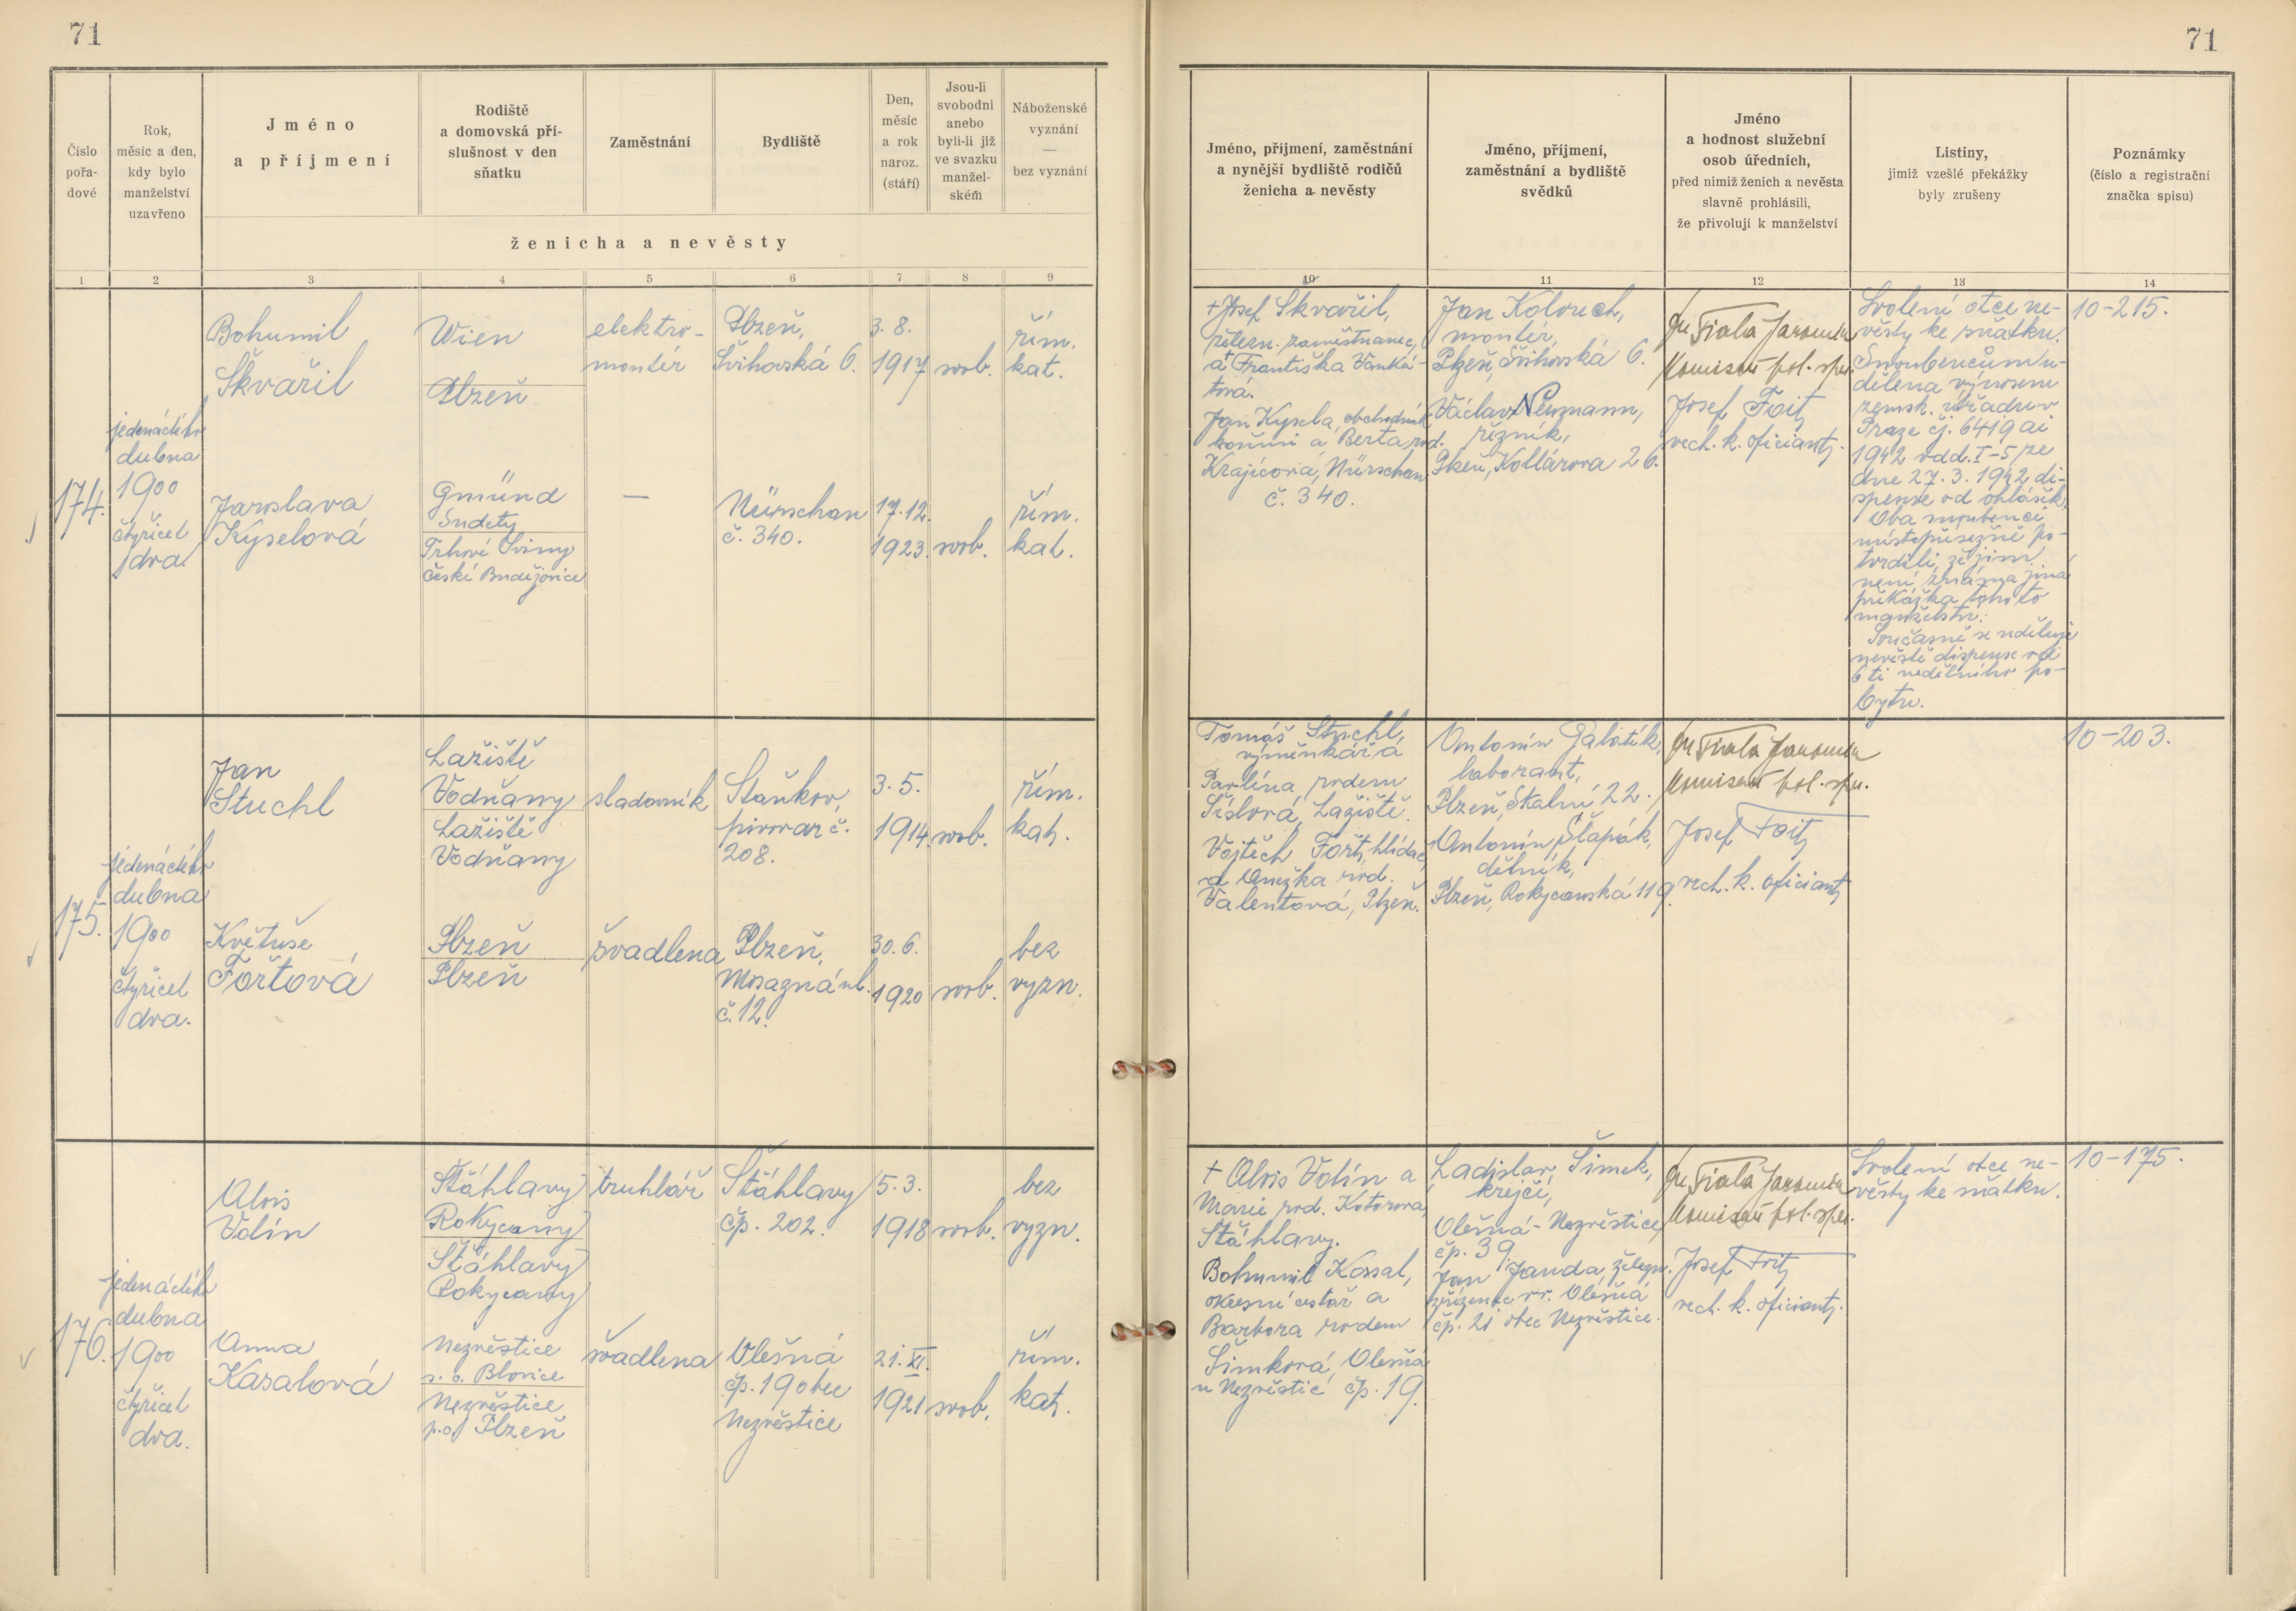 71
71
Číslo
pořa-
dové
Rok,
měsíc a den,
kdy bylo
manželství
uzavřeno
Jméno
a příjmení
Rodiště
a domovská pří-
slušnost v den
sňatku
Zaměstnání
Bydliště
Den,
měsíc
a rok
naroz.
(stáří)
Jsou-li
svobodni
anebo
byli-li již
ve svazku
manžel-
ském
Náboženské
vyznání
—
bez vyznání
ženicha a nevěsty
Jméno, příjmení, zaměstnání
a nynější bydliště rodičů
ženicha a nevěsty
Jméno, příjmení,
zaměstnání a bydliště
svědků
Jméno
a hodnost služební
osob úředních,
před nimiž ženich a nevěsta
slavně prohlásili,
že přivolují k manželství
Listiny,
jimiž vzešlé překážky
byly zrušeny
Poznámky
(číslo a registrační
značka spisu)
1 2 3 4 5 6 7 8 9
10 11 12 13 14
174.
jedenáctého
dubna
1900
čtyřicet
dva
Bohumil
Škvařil
Wien
Plzeň
elektro-
montér
Plzeň,
Švihovská 6.
3. 8.
1917
svob.
řím.
kat.
Jaroslava
Kyselová
Gmünd
Sudety
Trhové Sviny
České Budějovice
—
Nürschan
č. 340.
17. 12.
1923.
svob.
řím.
kat.
+ Josef Škvařil,
železn. zaměstnanec,
a Františka Vaňká-
tová.
Jan Kysela, obchodník
koňmi a Berta, rod.
Krajícová, Nürschan
č. 340.
Jan Kolouch,
montér,
Plzeň, Švihovská 6.
Václav Neumann,
řezník,
Plzeň, Kollárova 26.
Fiala Jaromír
Komisař pol. spr.
Josef Foit
vech. k. oficiant.
Svolení otce ne-
věsty ke sňatku.
Snoubencům u-
dělena výnosem
zemsk. úřadu v
Praze čj. 6419 ai
1942 odd. I-5 ze
dne 27. 3. 1942 di-
spense od ohlášek.
Oba snoubenci
místopřísežně po-
tvrdili, že jim
není známa jiná
překážka tohoto
manželství.
Současně se uděluje
nevěstě dispense od
6 ti nedělního po-
bytu.
10-215.
175.
jedenáctého
dubna
1900
čtyřicet
dva.
Jan
Stuchl
Lažiště
Vodňany
Lažiště
Vodňany
sladovník
Staňkov,
pivovar č.
208.
3. 5.
1914.
svob.
řím.
kat.
Květuše
Fořtová
Plzeň
Plzeň
švadlena
Plzeň,
Mosazná ul.
č. 12.
30. 6.
1920
svob.
bez
vyzn.
Tomáš Stuchl,
výměnkář a
Pavlína, rodem
Šíslová, Lažiště.
Vojtěch Fořt, hlídač,
a Anežka rod.
Valentová, Plzeň.
Antonín Galatík,
laborant,
Plzeň, Skalní 22.
Antonín Šlapák,
dělník,
Plzeň, Rokycanská 119.
Fiala Jaromír
Komisař pol. spr.
Josef Foit
vech. k. oficiant
10-203.
176.
jedenáctého
dubna
1900
čtyřicet
dva.
Alois
Volín
Šťáhlavy
Rokycany
Šťáhlavy
Rokycany
truhlář
Šťáhlavy
čp. 202.
5. 3.
1918
svob.
bez
vyzn.
Anna
Kasalová
Nezvěstice
s. o. Blovice
Nezvěstice
p. o. Plzeň
švadlena
Olešná
čp. 19 obec
Nezvěstice
21. XI.
1921
svob.
řím.
kat.
+ Alois Volín a
Marie rod. Kotorová,
Šťáhlavy.
Bohumil Kasal,
okresní cestář a
Barbora rodem
Šimková, Olešná
u Nezvěstic čp. 19.
Ladislav Šimek,
krejčí,
Olešná - Nezvěstice,
čp. 39.
Jan Janda, železn.
zřízenec vv. Olešná
čp. 21 obec Nezvěstice.
Fiala Jaromír
Komisař pol. spr.
Josef Foit
vech. k. oficiant.
Svolení otce ne-
věsty ke sňatku.
10-175.